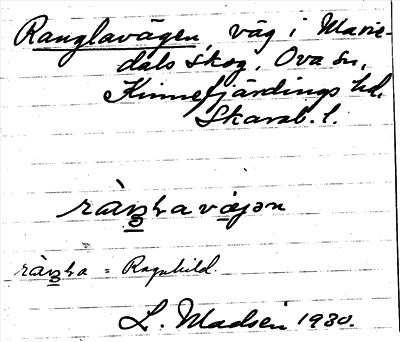 Ranglavägen, väg i Marie-
dals skog, Ova sn,
Kinnefjärdings hd,
Skarab. l.
ràŋla vägən
ràŋla = Ragnhild.
L. Madsen 1930.